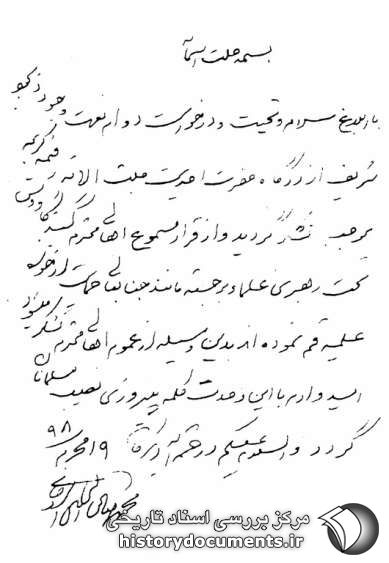 بسمه جلت اسمائه
با ابلاغ سلام و تحیت و درخواست دوام نعمت وجود ذیجود
شریف از درگاه حضرت احدیت جلت آلائه
موجب تشکر گردید و از قرار مسموع اهالی محترم
تحت رهبری علماء برجسته مانند جنابعالی
علمیه قم نموده اند بدین وسیله از عموم اهالی محترم تشکر میشود
امیدوارم با این وحدت کلمه پیروزی نصیب مسلمانان
گردد والسلام علیکم ورحمة الله وبرکاته ۱۹ محرم ۹۸
مرکز بررسی اسناد تاریخی
historydocuments.ir